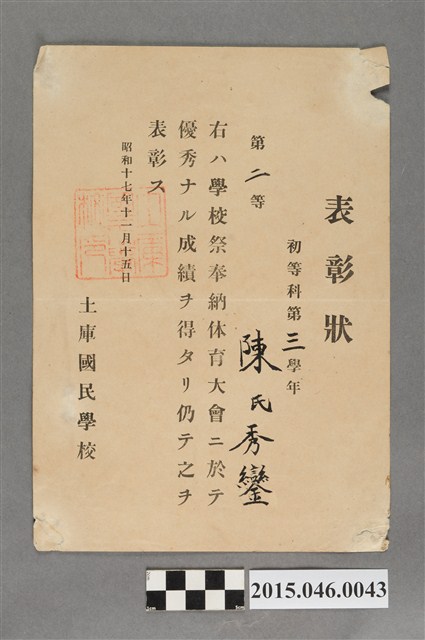 表彰狀
初等科第三學年
陳氏秀鑾
第二等
右ハ學校祭奉納体育大會ニ於テ
優秀ナル成績ヲ得タリ仍テ之ヲ
表彰ス
昭和十七年十一月十五日
土庫國民學校
2015.046.0043